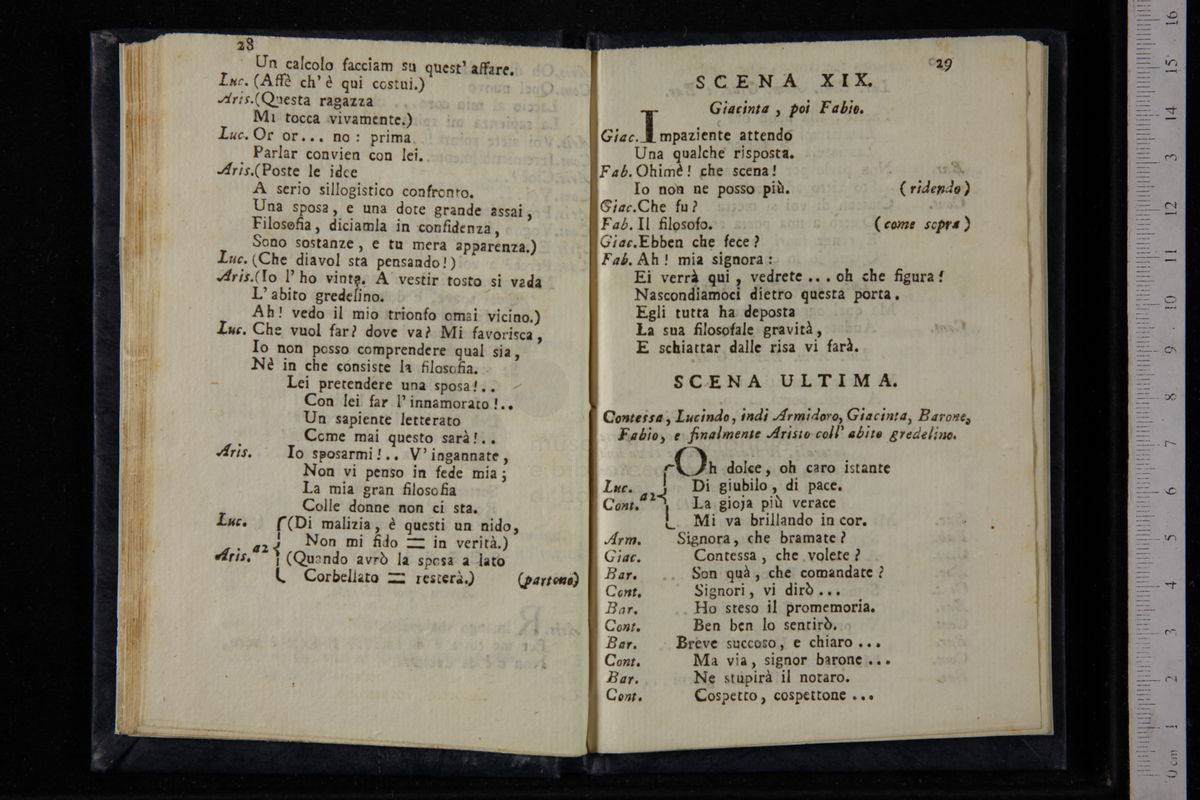 28
Un calcolo facciam su quest' affare.
Luc. (Affè ch' è qui costui.)
Aris.(Questa ragazza
Mi tocca vivamente.)
Luc. Or or... no: prima
Parlar convien con lei.
Aris.(Poste le idee
A serio sillogistico confronto.
Una sposa, e una dote grande assai,
Filosofia, diciamla in confidenza,
Sono sostanze, e tu mera apparenza.)
Luc. (Che diavol sta pensando!)
Aris.(Io l' ho vinta. A vestir tosto si vada
L' abito gredelino.
Ah! vedo il mio trionfo omai vicino.)
Luc. Che vuol far? dove va? Mi favorisca,
Io non posso comprendere qual sia,
Nè in che consiste la filosofia.
Lei pretendere una sposa!..
Con lei far l' innamorato!..
Un sapiente letterato
Come mai questo sarà!..
Aris. Io sposarmi!.. V' ingannate,
Non vi penso in fede mia;
La mia gran filosofia
Colle donne non ci sta.
Luc. (Di malizia, è questi un nido,
Non mi fido = in verità.)
a2
Aris. (Quando avrò la sposa a lato
Corbellato = resterà.) (partono)
29
SCENA XIX.
Giacinta, poi Fabio.
Giac. Impaziente attendo
Una qualche risposta.
Fab. Ohimè! che scena!
Io non ne posso più. (ridendo)
Giac.Che fu?
Fab. Il filosofo. (come sopra)
Giac.Ebben che fece?
Fab. Ah! mia signora:
Ei verrà qui, vedrete... oh che figura!
Nascondiamoci dietro questa porta.
Egli tutta ha deposta
La sua filosofale gravità,
E schiattar dalle risa vi farà.
SCENA ULTIMA.
Contessa, Lucindo, indi Armidoro, Giacinta, Barone,
Fabio, e finalmente Aristo coll' abito gredelino.
Oh dolce, oh caro istante
Luc. Di giubilo, di pace.
a2
Cont. La gioja più verace
Mi va brillando in cor.
Arm. Signora, che bramate?
Giac. Contessa, che volete?
Bar. Son quà, che comandate?
Cont. Signori, vi dirò...
Bar. Ho steso il promemoria.
Cont. Ben ben lo sentirò.
Bar. Breve succoso, e chiaro...
Cont. Ma via, signor barone...
Bar. Ne stupirà il notaro.
Cont. Cospetto, cospettone...
0 cm 1 2 3 4 5 6 7 8 9 10 11 12 13 14 15 16